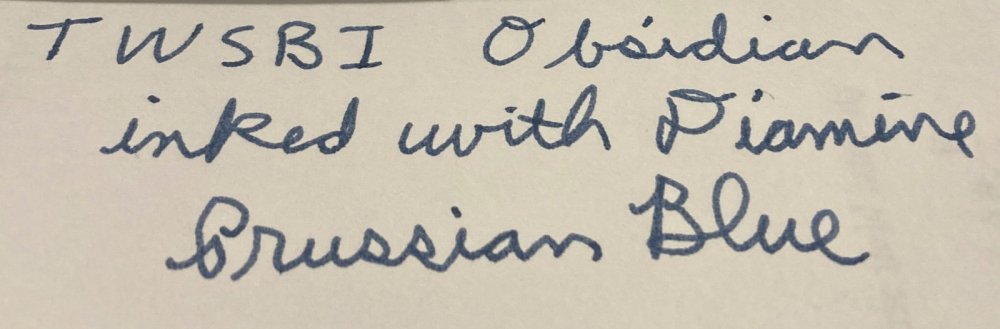 TWSBI Obsidian
inked with Diamine
Prussian Blue